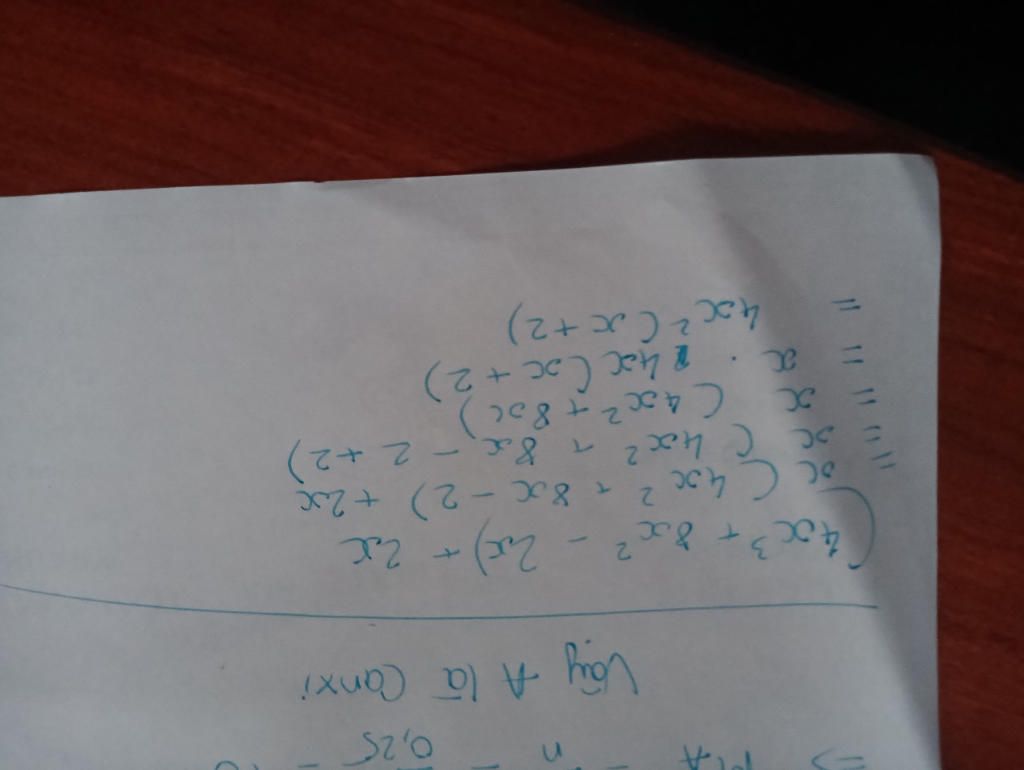 => MA = n = 0,25
Vậy A là Canxi
(4x³ + 8x² - 2x) + 2x
= x (4x² + 8x - 2) + 2x
= x (4x² + 8x - 2 + 2)
= x (4x² + 8x)
= x . 4x (x + 2)
= 4x² (x + 2)